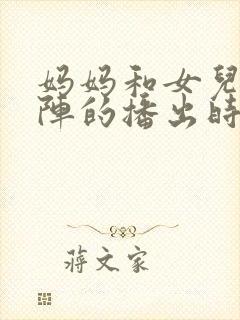 妈妈和女兒
陣的播出時
蔣文家